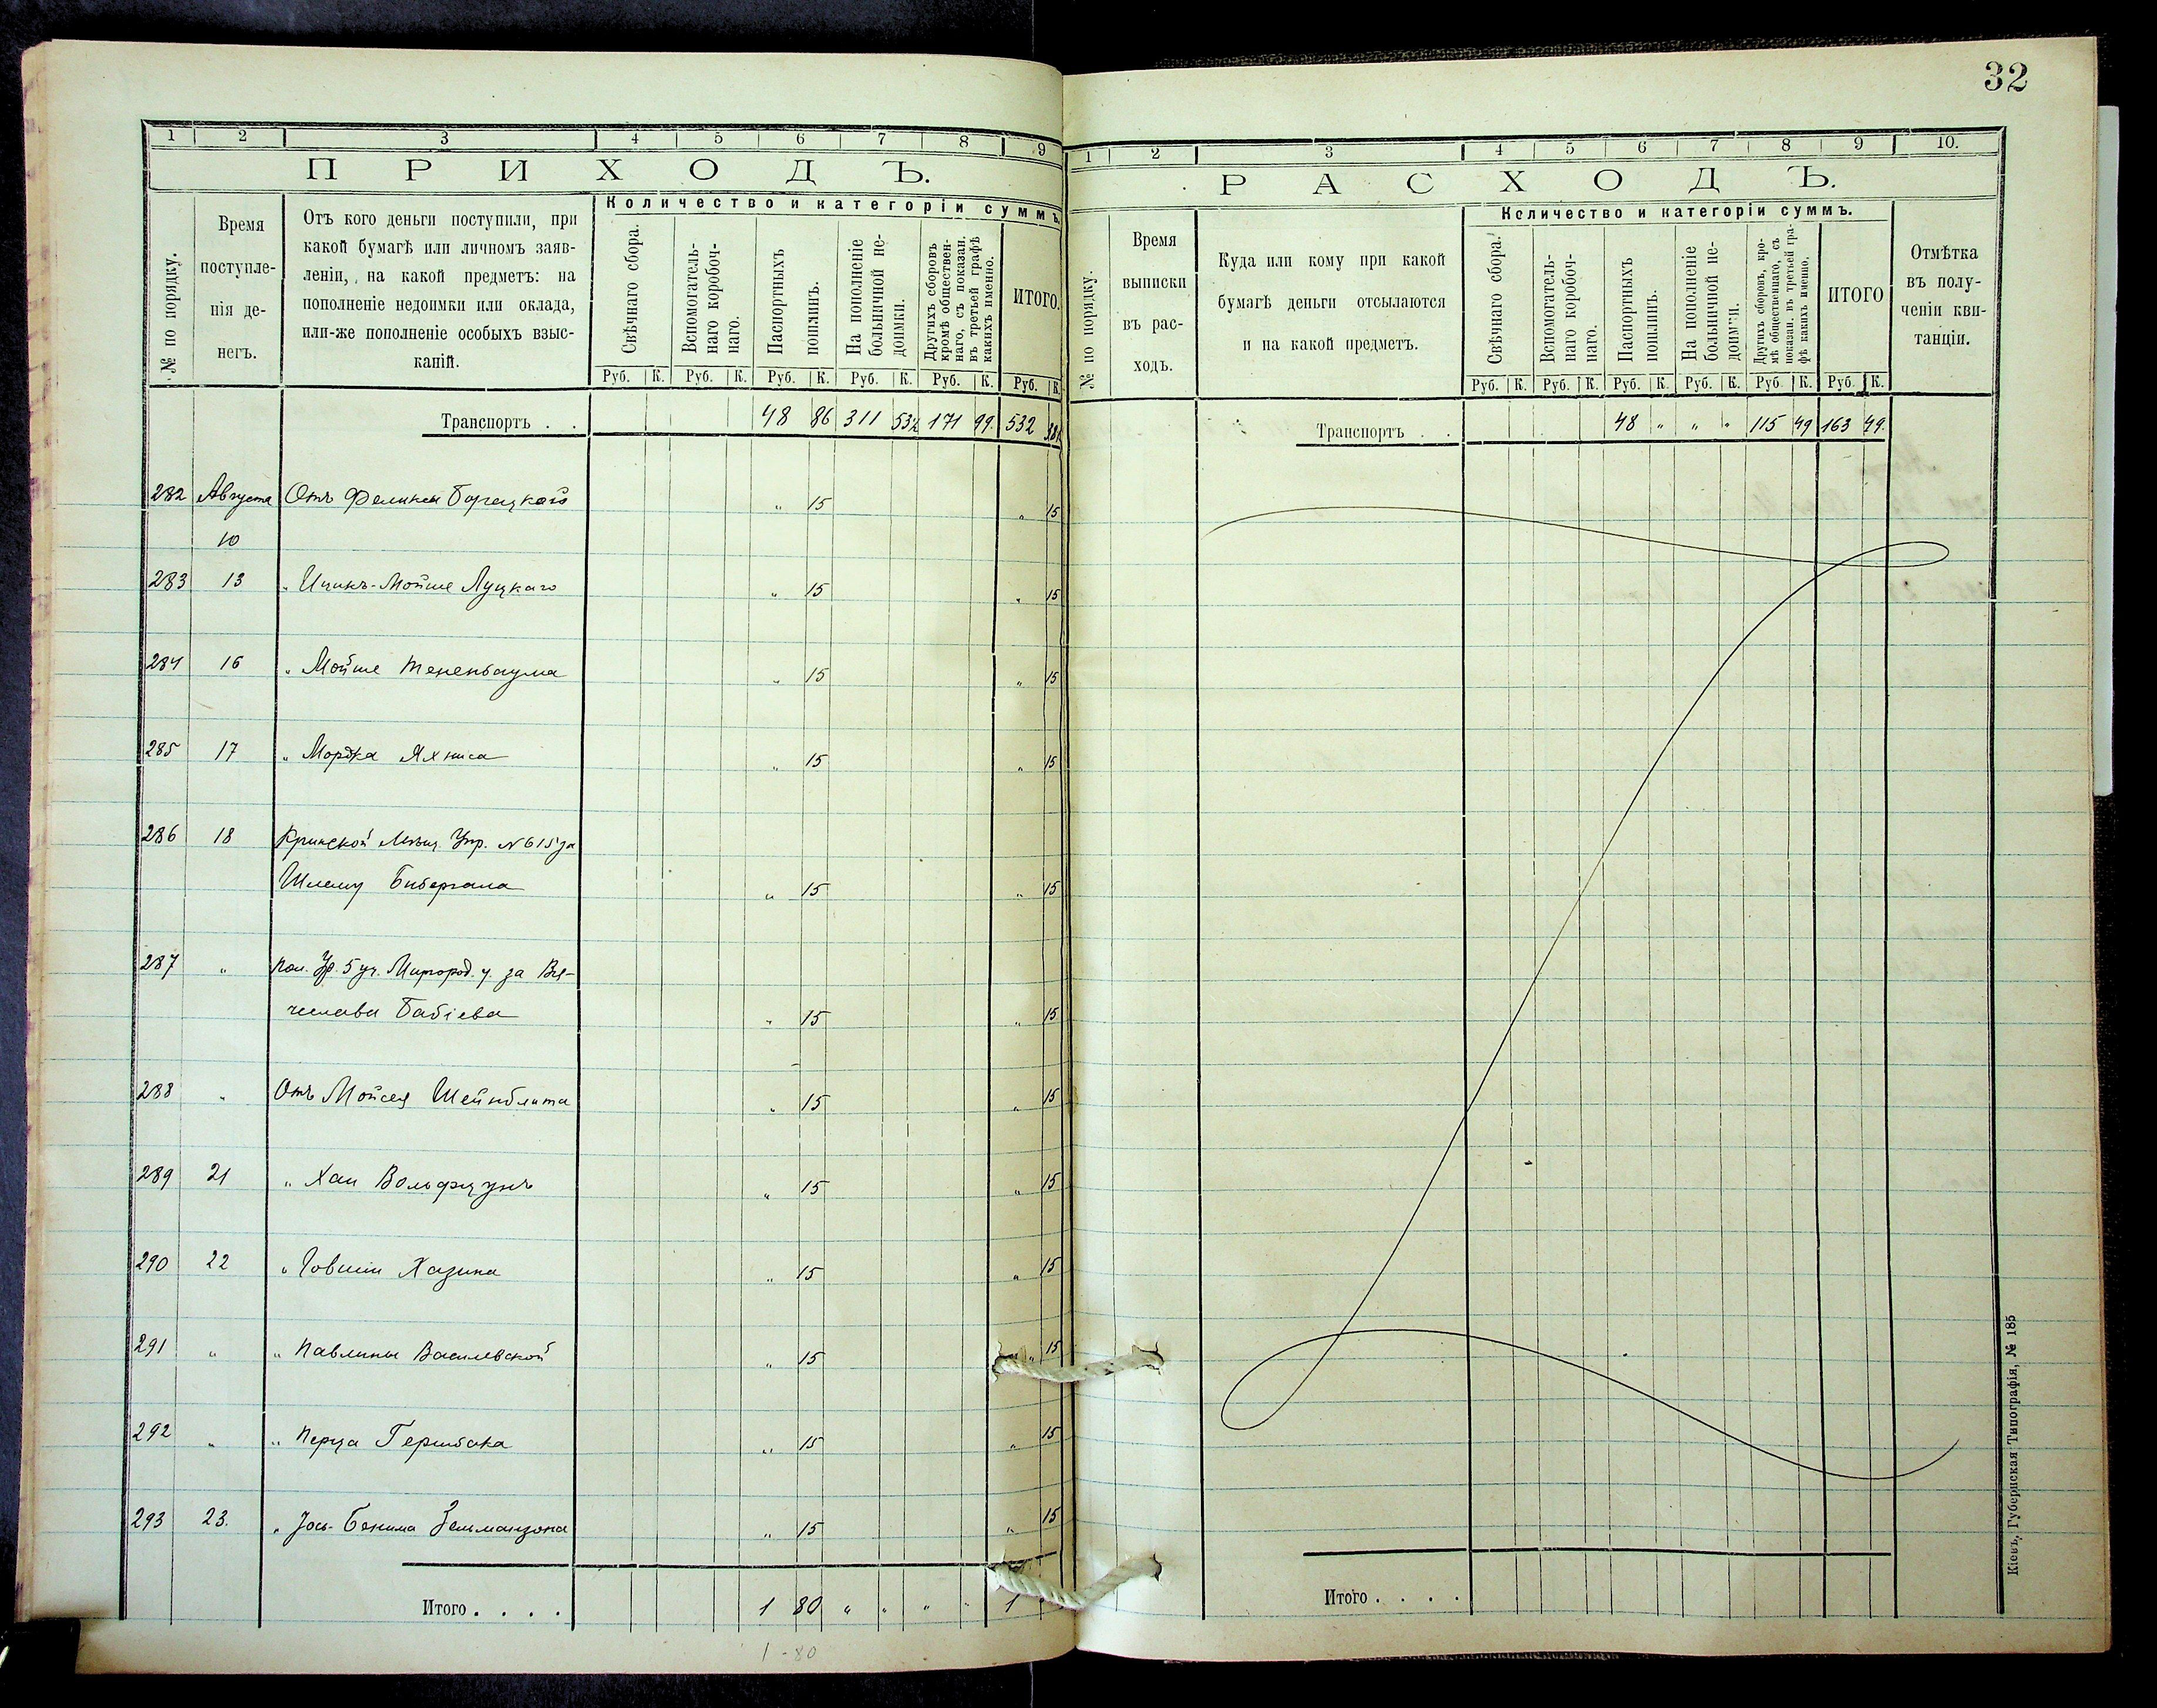 32
1 2 3 4 5 6 7 8 9
ПРИХОДЪ.
№ по порядку.
Время
поступле-
нія де-
негъ.
Отъ кого деньги поступили, при
какой бумагѣ или личномъ заяв-
леніи, на какой предметъ: на
пополненіе недоимки или оклада,
или-же пополненіе особыхъ взыс-
каній.
Количество и категоріи суммъ.
Свѣчнаго сбора.
Вспомогатель-
наго коробоч-
наго.
Паспортныхъ
пошлинъ.
На пополненіе
больничной не-
доимки.
Другихъ сборовъ
кромѣ обществен-
наго, съ показан.
въ третьей графѣ
какихъ именно.
ИТОГО.
Руб. К. Руб. К. Руб. К. Руб. К. Руб. К. Руб. К.
Транспортъ . . 48 86 311 53½ 171 99. 532 38½
282 Августа Отъ Феликсы Борецкой " 15 " 15
10
283 13 " Ицикъ-Мойше Луцкаго " 15 " 15
284 16 " Мойше Тененбаума " 15 " 15
285 17 " Мордка Яхниса " 15 " 15
286 18 Крынской Мѣщ. Упр. №615 за
Шлему Бибергала " 15 " 15
287 " Пол. Ур. 5 уч. Миргород. у. за Вя-
чеслава Бабіева " 15 " 15
288 " Отъ Мойсея Шейнблита " 15 " 15
289 21 " Хаи Вольфцунъ " 15 " 15
290 22 " Іовшіи Хазина " 15 " 15
291 " " Павлины Василевской " 15 " 15
292 " " Перца Гершбака " 15 " 15
293 23. " Іось-Бенима Зельманзона " 15 " 15
Итого . . . . 1 80 " " " " 1
1-80
1 2 3 4 5 6 7 8 9 10.
РАСХОДЪ.
№ по порядку.
Время
выписки
въ рас-
ходъ.
Куда или кому при какой
бумагѣ деньги отсылаются
и на какой предметъ.
Количество и категоріи суммъ.
Свѣчнаго сбора.
Вспомогатель-
наго коробоч-
наго.
Паспортныхъ
пошлинъ.
На пополненіе
больничной не-
доимки.
Другихъ сборовъ, кро-
мѣ общественнаго, съ
показан. въ третьей гра-
фѣ какихъ именно.
ИТОГО
Отмѣтка
въ полу-
ченіи кви-
танціи.
Руб. К. Руб. К. Руб. К. Руб. К. Руб. К. Руб. К.
Транспортъ . . 48 " " " 115 49 163 49.
Итого . . . .
Кіевъ, Губернская Типографія, № 185